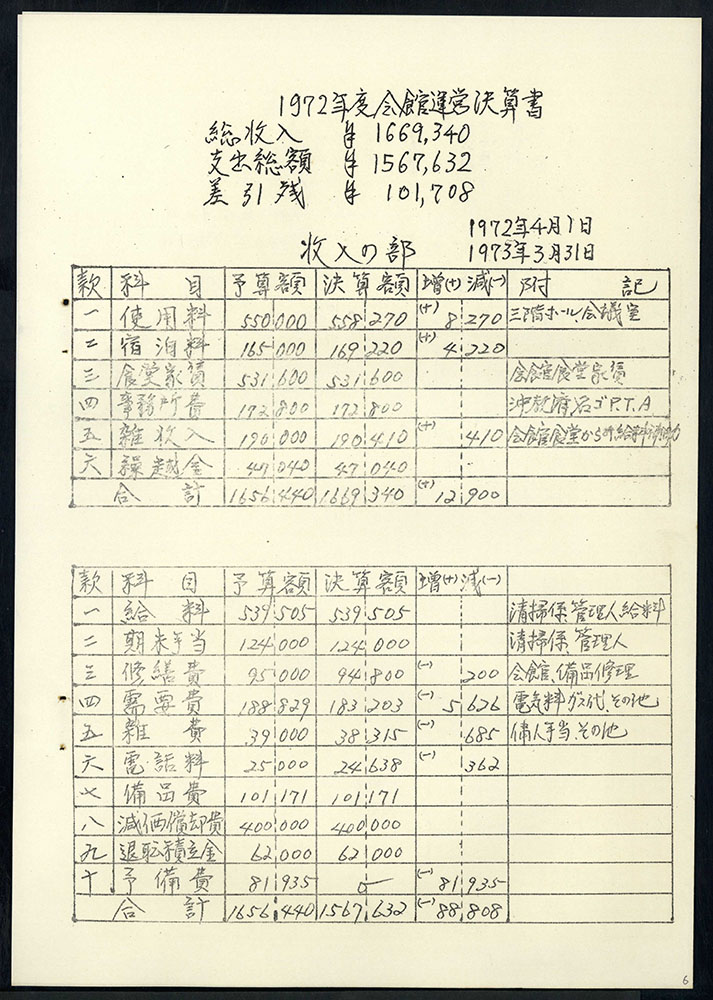 1972年度会館運営決算書
総収入 ¥ 1669,340
支出総額 ¥ 1567,632
差引残 ¥ 101,708
1972年4月1日
収入の部 1973年3月31日
款 科目 予算額 決算額 増(+)減(-) 附記
一 使用料 550 000 558 270 (+) 8 270 三階ホール、会議室
二 宿泊料 165 000 169 220 (+) 4 220
三 食堂家賃 531 600 531 600 会館食堂家賃
四 事務所費 172 800 172 800 P.T.A
五 雑収入 190 000 190 410 (+) 410 会館食堂から
六 繰越金 47 040 47 040
合計 1656 440 1669 340 (+) 12 900
款 科目 予算額 決算額 増(+)減(-)
一 給料 539 505 539 505 清掃係、管理人給料
二 期末手当 124 000 124 000 清掃係、管理人
三 修繕費 95 000 94 800 (-) 200 会館、備品修理
四 需要費 188 829 183 203 (-) 5 626 電気料、ガス代、その他
五 雑費 39 000 38 315 (-) 685 傭人手当、その他
六 電話料 25 000 24 638 (-) 362
七 備品費 101 171 101 171
八 減価償却費 400 000 400 000
九 退職積立金 62 000 62 000
十 予備費 81 935 (-) 81 935
合計 1656 440 1567 632 (-) 88 808
6